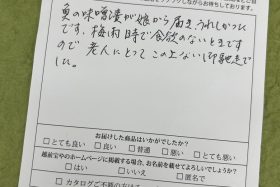 しながらお待ちしております。
魚の味噌漬が娘から届きうれしかった
です、梅雨時で食欲のないときです
ので 老人にとってこの上ない御馳走で
した。
お届けした商品はいかがでしたか?
□とても良い □良い □普通 □悪い □とても悪い
越前宝やのホームページに掲載する場合、お名前を載せてよろしいでしょうか?
□はい □いいえ □匿名で